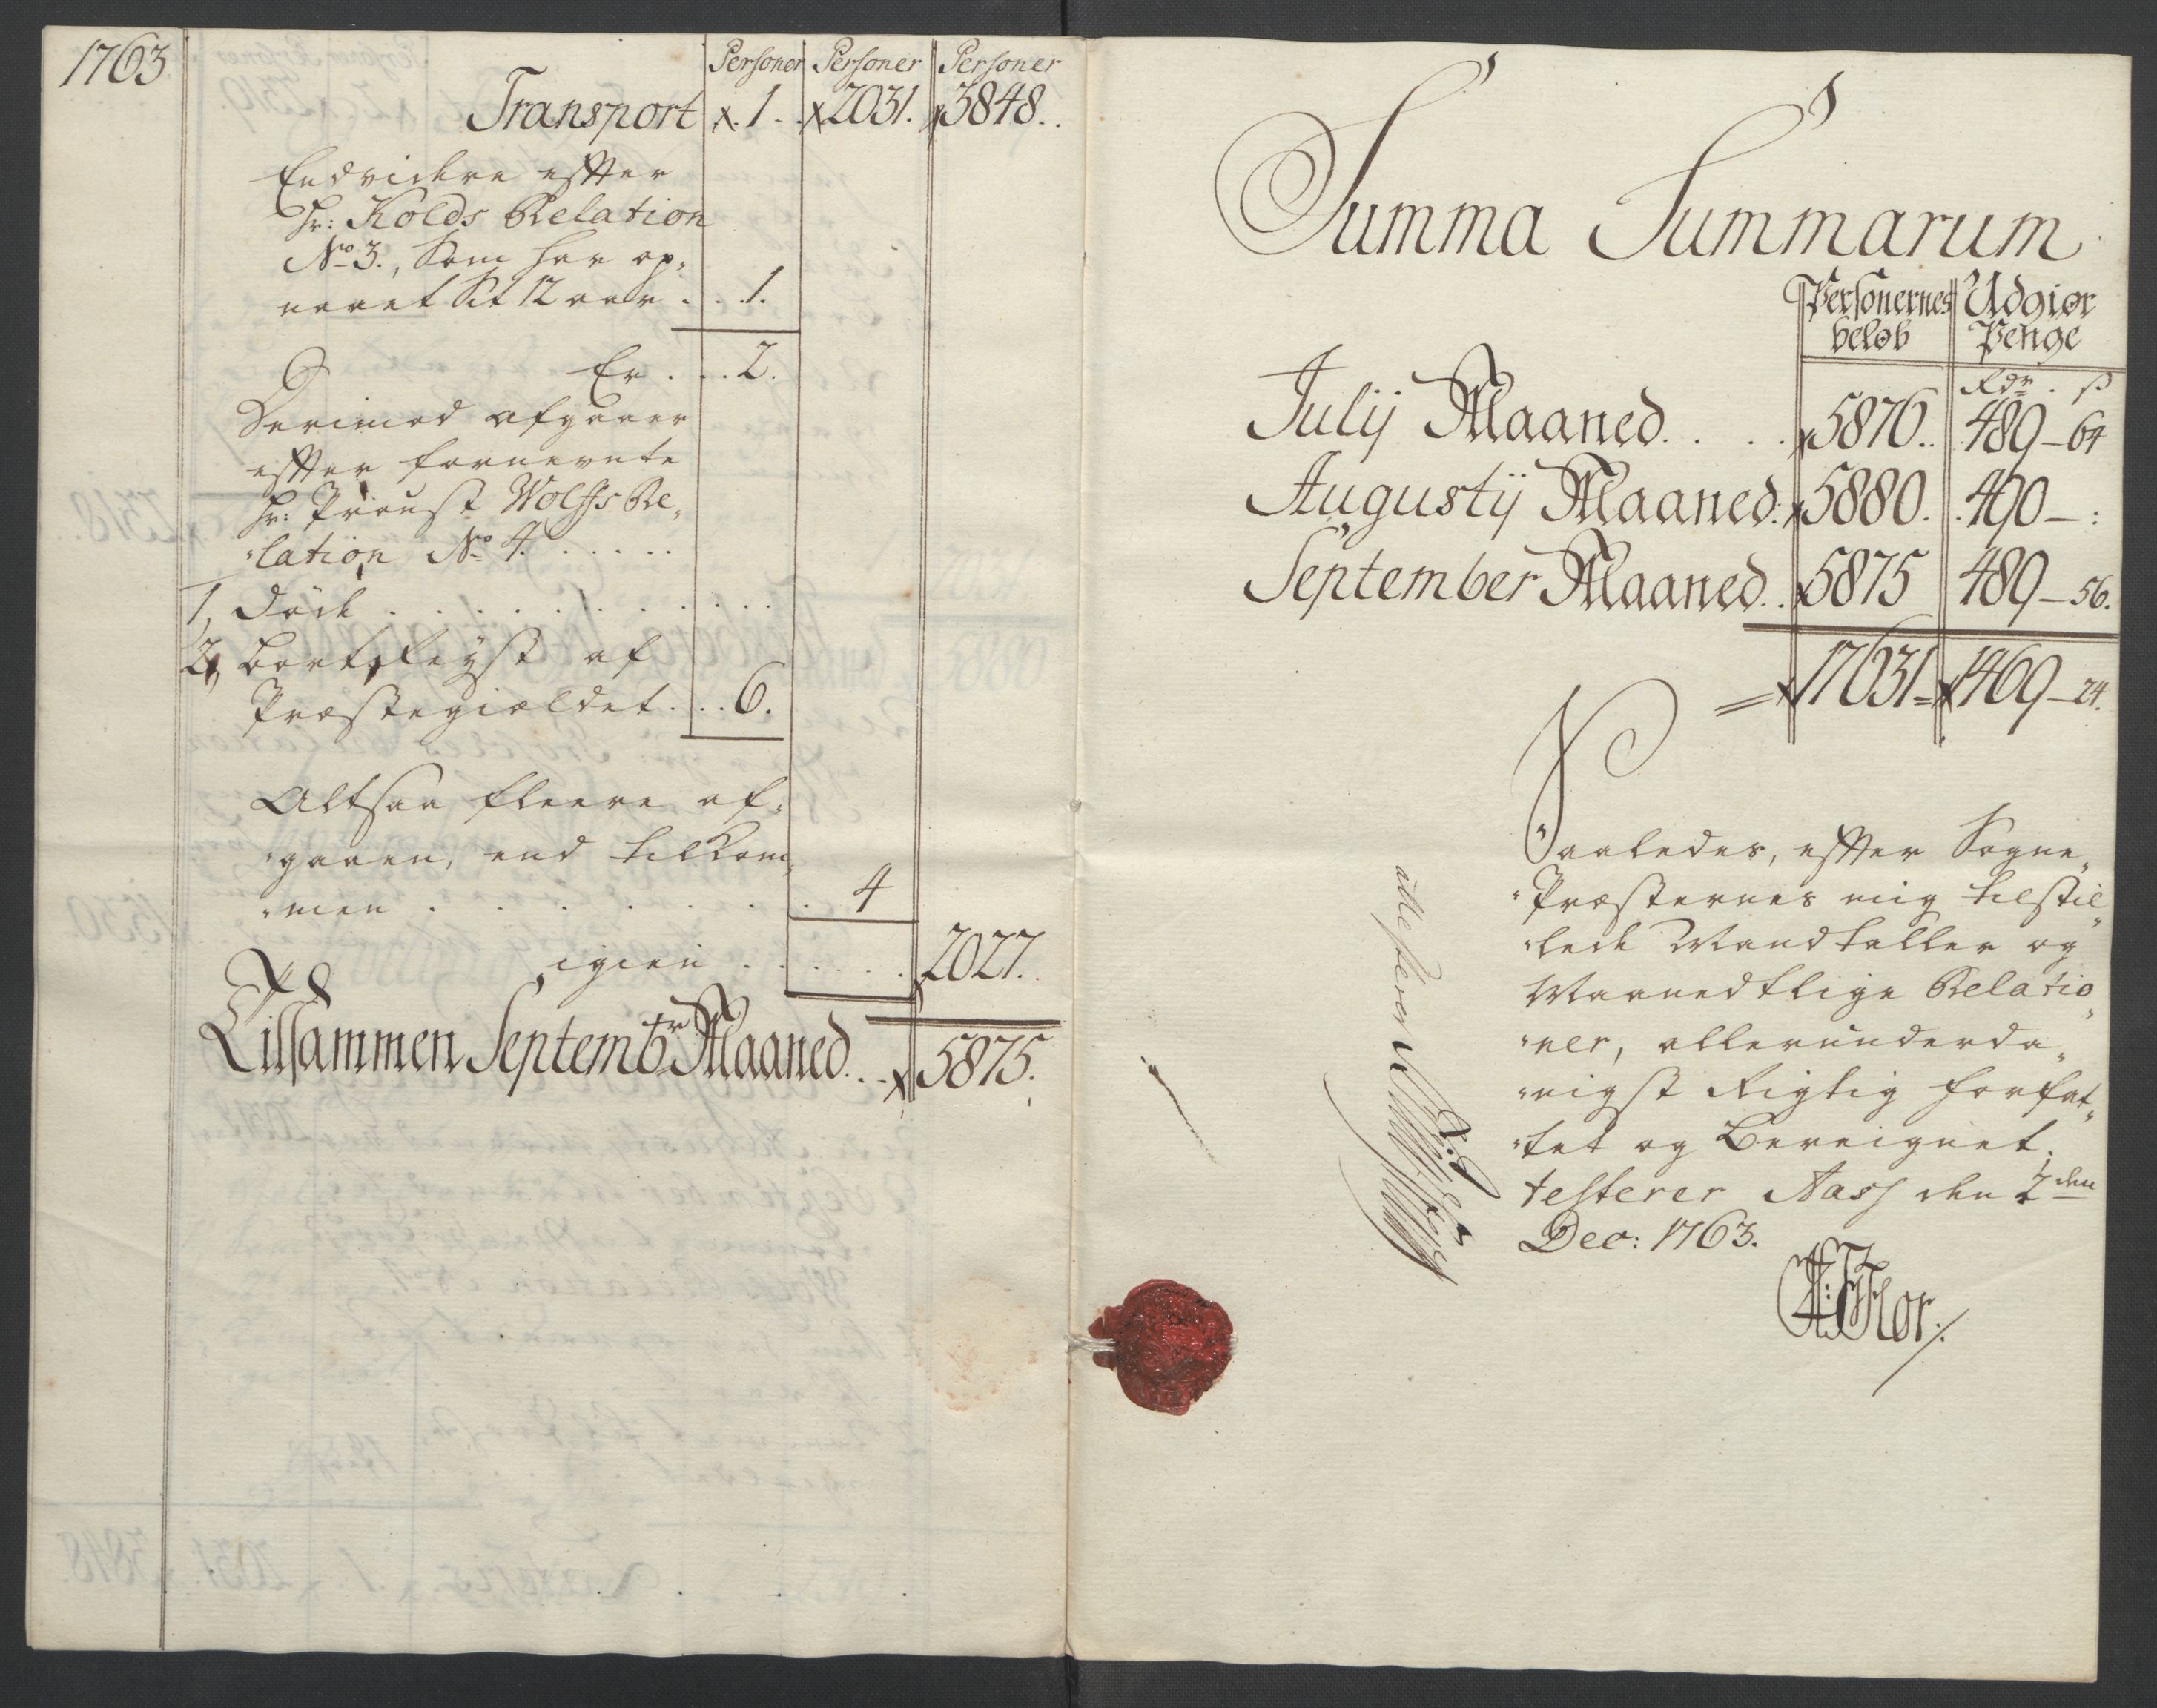 1763
Personer Personer Personer
Transport x. 1. x2031. x3848.
Endvidere efter
Hr: Kolds Relation
No 3., Som har op,
naaet Sit 12 aar . . 1.
Er . . . 2.
Derimod afgaaer
efter fornevnte
Hr: Proust Wolffs Re,
"lation No 4. . . . . .
1, døde . . . . . . . . .
2, bortreyst af
Præstegieldet . . . 6.
Altsaa fleere af,
"gaaen, end tilkom,
"men . . . . . . 4
igien . . . . . . 2027.
Tilsammen Septembr Maaned . . x 5875.
Summa Summarum
Personernes Udgiør
beløb Penge
Rdr . ß
Julij Maaned . . . . x5876.. 489 – 64
Augustij Maaned. x5880. 490 – :
September Maaned . . x5875 489 – 56.
= x17631 = x1469 – 24.
Saaledes, efter Sogne,
"Præsternes mig tilstil,
"lede Mandtaller og
Maanedtlige Relatio,
"ner, allerunderda,
"nigst Rigtig forfat,
"tet og Bereignet.
testerer Aass den 2den
Dec: 1763.
Flor ./.
attesterer